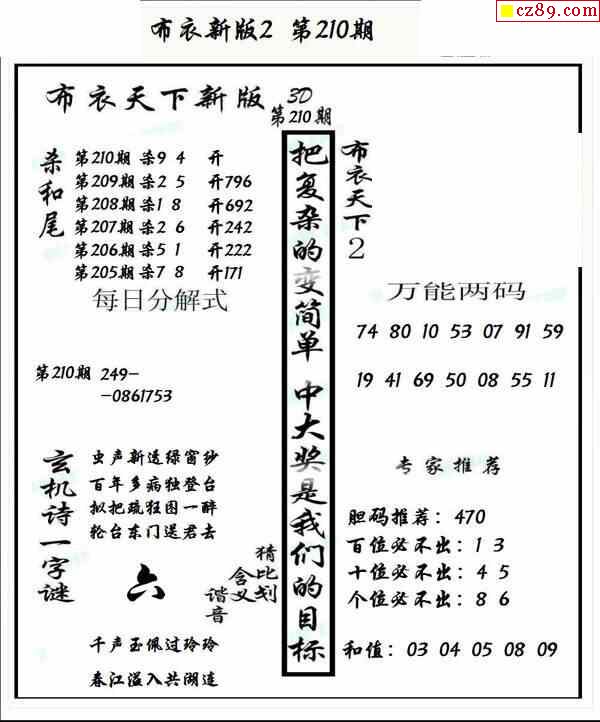 cz89.com
布衣新版2 第210期
布衣天下新版 3D
第210期
杀和尾
第210期 杀9 4 开
第209期 杀2 5 开796
第208期 杀1 8 开692
第207期 杀2 6 开242
第206期 杀5 1 开222
第205期 杀7 8 开171
每日分解式
第210期 249-
-0861753
玄机诗一字谜
虫声新透绿窗纱
百年多病独登台
拟把疏狂图一醉
轮台东门送君去
六
猜比划
含义
谐音
千声玉佩过玲玲
春江溢入共湖连
把复杂的变简单 中大奖是我们的目标
布衣天下2
万能两码
74 80 10 53 07 91 59
19 41 69 50 08 55 11
专家推荐
胆码推荐：470
百位必不出：1 3
十位必不出：4 5
个位必不出：8 6
和值：03 04 05 08 09